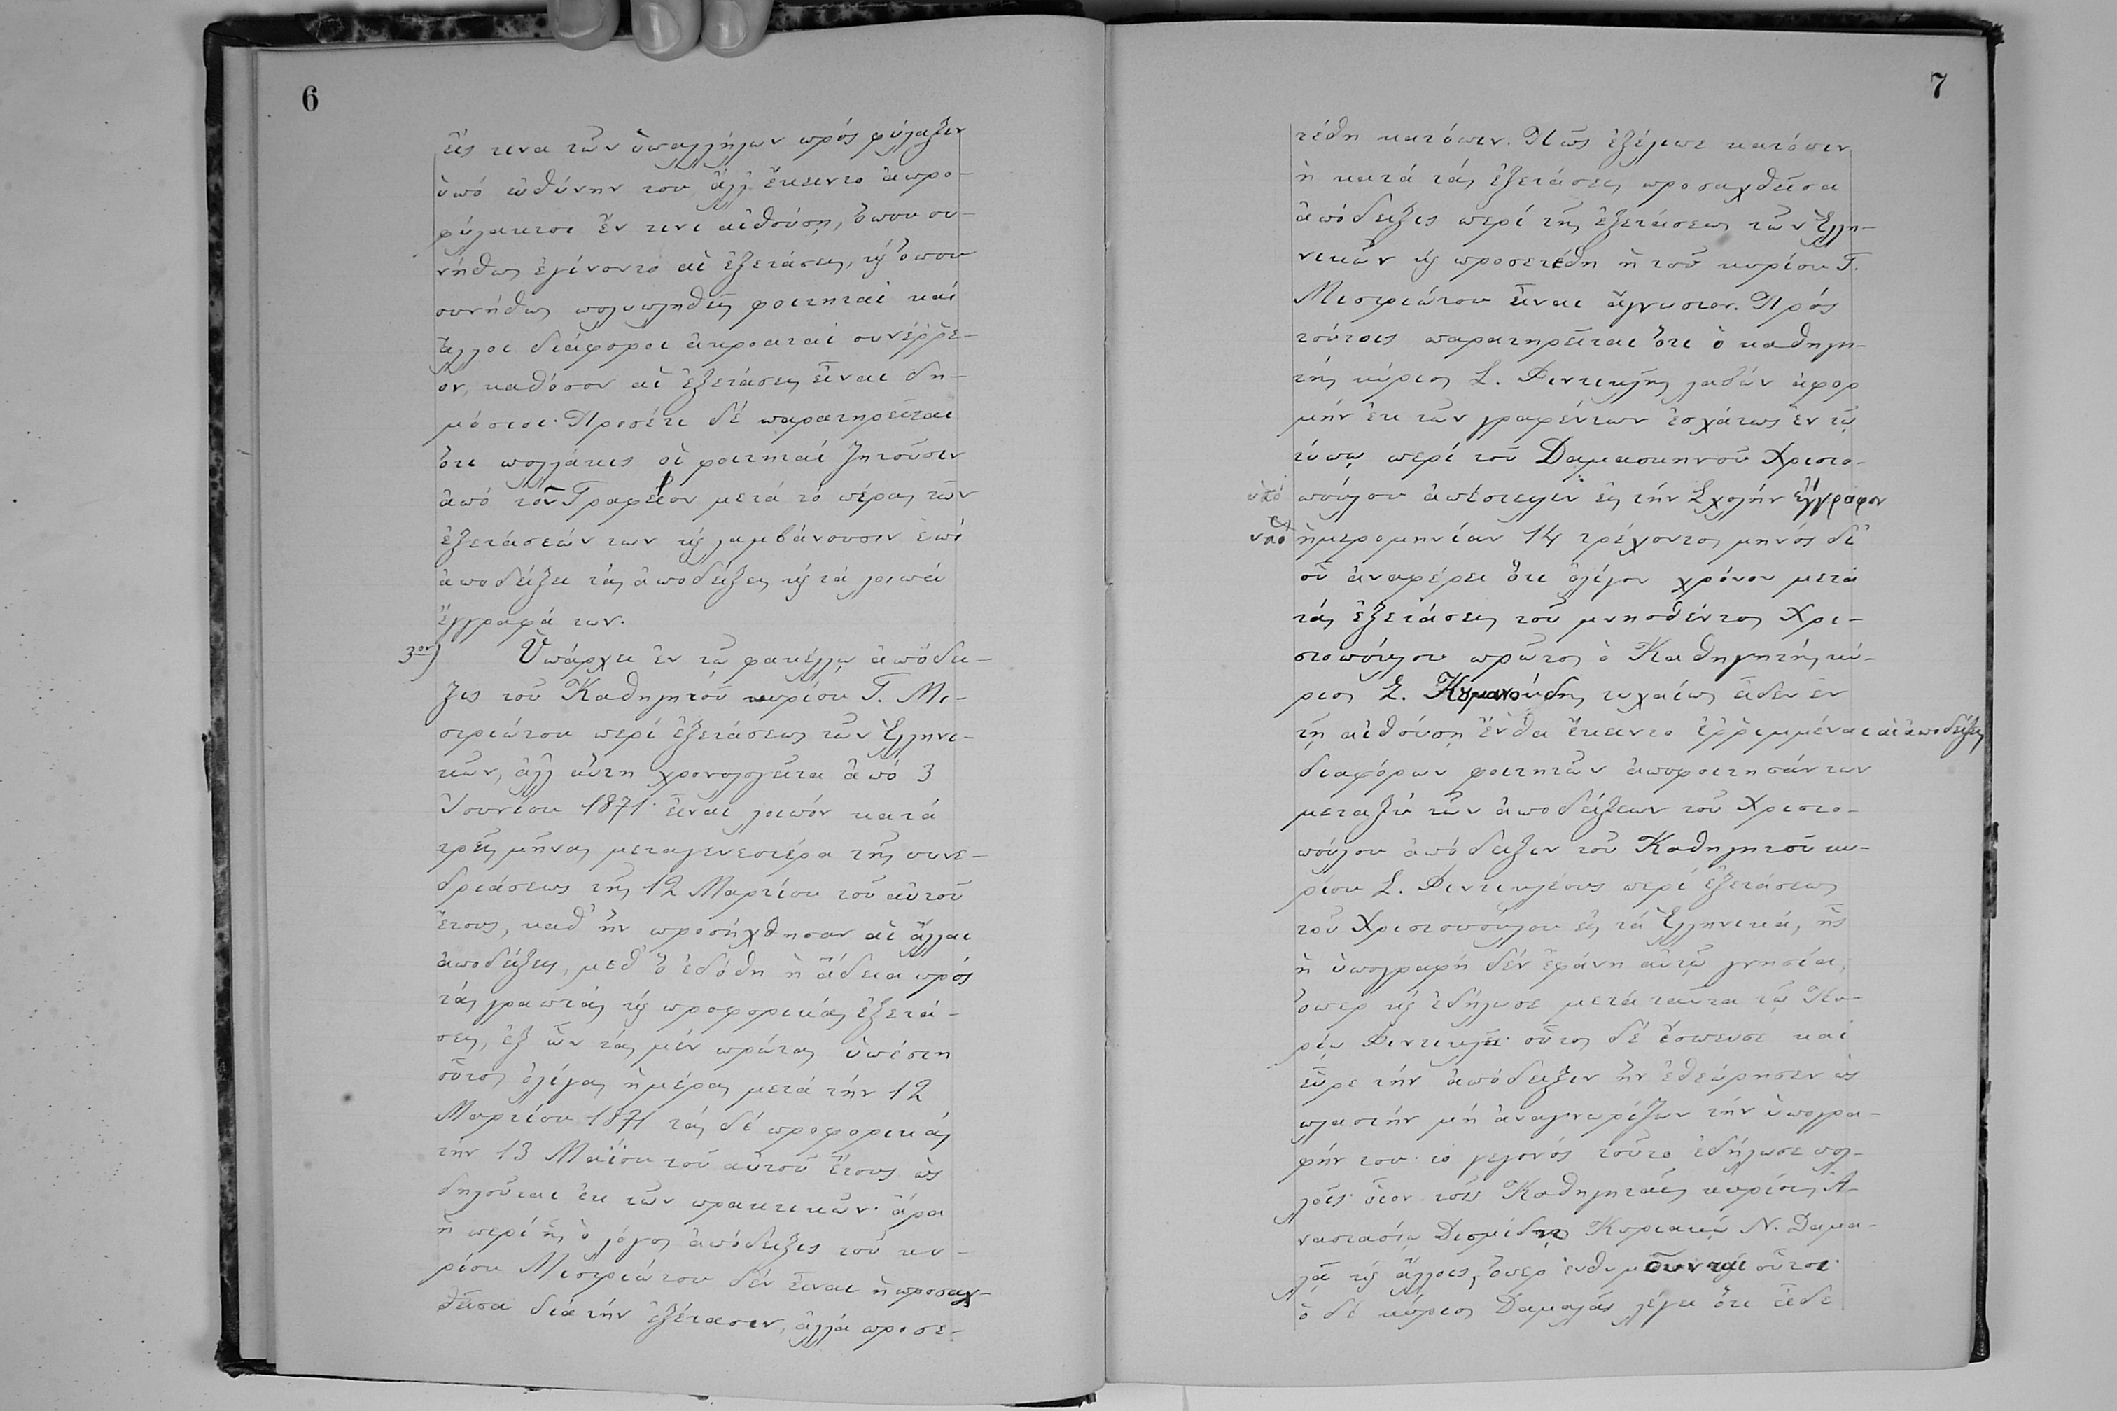 6
εἴς τινα τῶν ὑπαλλήλων πρός φύλαξιν
ὑπό εὐθύνην του ἀλλ' ἔκειντο ἀπρο-
φύλακτοι ἔν τινι αἰθούσῃ, ὅπου συ-
νήθως ἐγίνοντο αἱ ἐξετάσεις, ϗ ὅπου
συνήθως πολυπληθεῖς φοιτηταί καί
ἄλλοι διάφοροι ἀκροαταί συνέῤῥε-
ον, καθόσον αἱ ἐξετάσεις εἶναι δη-
μόσιοι. Προσέτι δέ παρατηρεῖται
ὅτι πολλάκις οἱ φοιτηταί ζητοῦσιν
ἀπό τὸν Γραφεῖον μετά τό πέρας τῶν
ἐξετάσεών των ϗ λαμβάνουσιν ἐπί
ἀποδείξει τάς ἀποδείξεις ϗ τά λοιπά
ἔγγραφά των.
3ον) Ὑπάρχει ἐν τῷ φακέλλῳ ἀπόδει-
ξις τοῦ Καθηγητοῦ κυρίου Γ. Μι-
στριώτου περί ἐξετάσεως τῶν Ἑλληνι-
κῶν, ἀλλ' αὕτη χρονολογεῖται ἀπό 3
Ἰουνίου 1871· εἶναι λοιπόν κατά
τρεῖς μῆνας μεταγενεστέρα τῆς συνε-
δριάσεως τῆς 12 Μαρτίου τοῦ αὐτοῦ
ἔτους, καθ' ἥν προσήχθησαν αἱ ἄλλαι
ἀποδείξεις, μεθ' ὅ ἐδόθη ἡ ἄδεια πρός
τάς γραπτάς ϗ προφορικάς ἐξετά-
σεις, ἐξ ὧν τάς μέν πρώτας ὑπέστη
οὗτος ὀλίγας ἡμέρας μετά τήν 12
Μαρτίου 1871 τάς δέ προφορικάς
τήν 13 Μαΐου τοῦ αὐτοῦ ἔτους ὡς
δηλοῦται ἐκ τῶν πρακτικῶν· ἄρα
ἡ περί ἧς ὁ λόγος ἀπόδειξις τοῦ κυ-
ρίου Μιστριώτου δέν εἶναι ἡ προσαχ-
θεῖσα διά τήν ἐξέτασιν, ἀλλά προσε-
7
τέθη κατόπιν. Πῶς ἐξέλιπε κατόπιν
ἡ κατά τάς ἐξετάσεις προσαχθεῖσα
ἀπόδειξις περί τῆς ἐξετάσεως τῶν Ἑλλη-
νικῶν ϗ προσετέθη ἡ τοῦ κυρίου Γ.
Μιστριώτου εἶναι ἄγνωστον. Πρός
τούτοις παρατηρεῖται ὅτι ὁ καθηγη-
τής κύριος Σ. Φιντικλῆς λαβών ἀφορ
μήν ἐκ τῶν γραφέντων ἐσχάτως ἐν τῷ
τύπῳ περί τοῦ Δαμασκηνοῦ Χριστο-
ὑπό πούλου ἀπέστειλεν εἰς τήν Σχολήν ἔγγραφον
ὑπό ἡμερομηνίαν 14 τρέχοντος μηνός δι'
οὗ ἀναφέρει ὅτι ὀλίγον χρόνον μετά
τάς ἐξετάσεις τοῦ μνησθέντος Χρι-
στοπούλου πρῶτος ὁ Καθηγητής κύ-
ριος Σ. Κουμανούδης τυχαίως εἶδεν ἐν
τῇ αἰθούσῃ ἔνθα ἔκειντο ἐῤῥιμμέναι αἱ ἀποδείξεις
διαφόρων φοιτητῶν ἀποφοιτησάντων
μεταξύ τῶν ἀποδείξεων τοῦ Χριστο-
πούλου ἀπόδειξιν τοῦ Καθηγητοῦ κυ-
ρίου Σ. Φιντικλέους περί ἐξετάσεως
τοῦ Χριστοπούλου εἰς τά Ἑλληνικά, ἧς
ἡ ὑπογραφή δέν ἐφάνη αὐτῷ γνησία,
ὅπερ ϗ ἐδήλωσε μετά ταῦτα τῷ Κυ-
ρίῳ Φιντικλεῖ· οὗτος δέ ἔσπευσε καί
εὗρε τήν ἀπόδειξιν ἥν ἐθεώρησεν ὡς
πλαστήν μή ἀναγνωρίζων τήν ὑπογρα-
φήν του· τό γεγονός τοῦτο ἐδήλωσε πολ-
λοῖς οἷον τοῖς Καθηγηταῖς κυρίοις Ἀ-
ναστασίῳ Διομήδῃ Κυριακῷ Ν. Δαμα-
λᾷ ϗ ἄλλοις, ὅπερ ἐνθυμοῦνται οὗτοι·
ὁ δέ κύριος Δαμαλάς λέγει ὅτι εἶδε